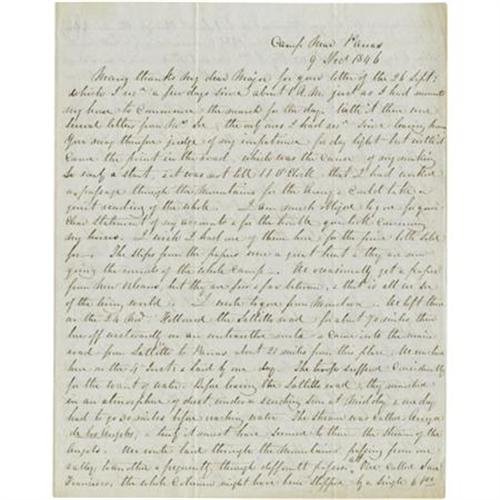 Camp Near Parras
9 Nov 1846
Many thanks my dear Major for your letter of the 26 Sept:
which I recd a few days since about 1 A.M. just as I had mounted
my horse to commence the march for the day. With it there were
several letters from Mrs Lee the only ones I had recd since leaving home
You may therefore judge of my impatience for day light but until I
came to the point in the road which was the cause of my making
so early a start, & it was not till 11 O'Clock that I had worked
a passage through the Mountains for the Army, I could take a
quiet reading of the whole. I am much obliged to you for your
clear statement of my accounts & for the trouble you took concerning
my horses. I wish I had one of them here, for the fine
for. The slips from the papers were a great treat & they are now
going the rounds of the whole camp. We occasionally get a paper
from New Orleans, but they are few & far between, & that is all we see
of the living world. I wrote to you from Monclova. We left there
on the 24 and followed the Saltillo road for about 70 miles then
bore off westwardly on an route & came into the main
road from Saltillo to Parras about 21 miles from this place. We reached
here on the 4th & laid by one day. The troops suffered considerably
for the want of water. Before leaving the Saltillo road, they marched
in an atmosphere of dust under a scorching sun at Midday, & one day
had to go 30 miles before reaching water. The stream was called
de los Angeles, & long it must have seemed to them the stream of the
Angels. Our route laid through the Mountains, passing from one
valley to another & frequently through difficult passes. At One called San
Francisco, the whole Column might have been stopped by a single 6 pdr